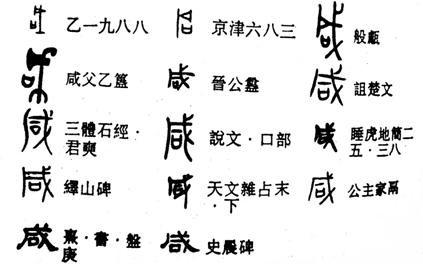 乙一九八八
京津六八三
般甗
咸父乙簋
晉公
詛楚文
三體石經·
君奭
說文·口部
睡虎地簡二
五·三八
繹山碑
天文雜占末
·下
公主家鬲
熹·書·盤
庚
史晨碑